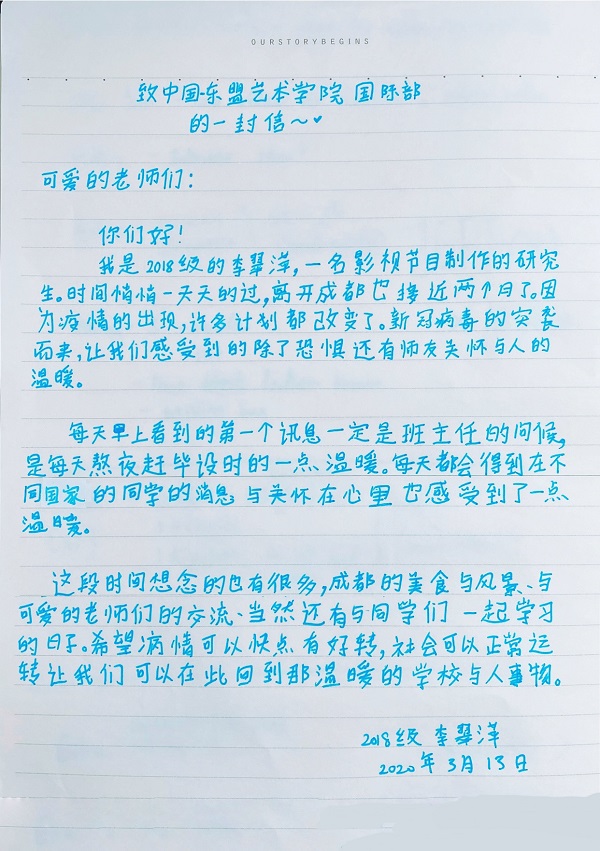 OURSTORYBEGINS
致中国-东盟艺术学院 国际部
的一封信～♥
可爱的老师们：
你们好！
我是2018级的李翠萍，一名影视节目制作的研究
生。时间悄悄一天天的过，离开成都也接近两个月了。因
为疫情的出现，许多计划都改变了。新冠病毒的突袭
而来，让我们感受到的除了恐惧还有师友关怀与人的
温暖。
每天早上看到的第一个讯息一定是班主任的问候，
是每天熬夜赶毕设时的一点温暖。每天都会得到在不
同国家的同学的消息与关怀在心里也感受到了一点
温暖。
这段时间想念的也有很多，成都的美食与风景、与
可爱的老师们的交流、当然还有与同学们一起学习
的日子。希望病情可以快点有好转，社会可以正常运
转让我们可以在此回到那温暖的学校与人事物。
2018级 李翠萍
2020年3月13日